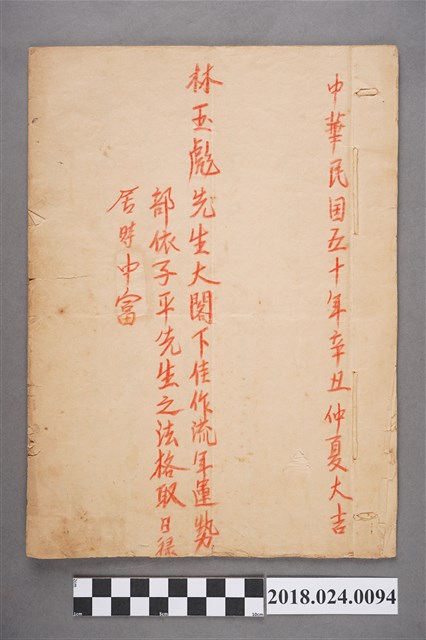 中華民国五十年辛丑仲夏大吉
林玉彪先生大閣下佳作流年運勢
部依子平先生之法格取日禄
居時中富
2018.024.0094
1cm 5cm 10cm